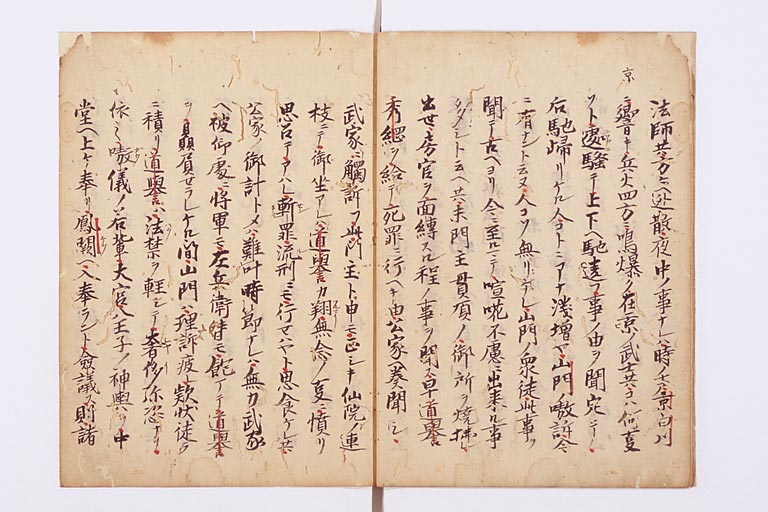 京
法師共方々へ逃散夜中ノ事ナレハ時ノ声京白川
ニ響キ兵火四方ニ鳴爆ノ在京ノ武士共コハ何事
ソト遽騒テ上下ヘ馳違フ事ノ由ヲ聞定テ
后馳帰リケル合トミアナ浅増ヤ山門ノ嗷訴今
ニ有ヌト云ヌ人コソ無リケレ山門ノ衆徒此事ヲ
聞テ古ヘヨリ今ニ至ルマテ喧嘩不慮ニ出来ル事
多シト云ヘ共未門主貫頂ノ御所ヲ焼払
出世房官ヲ面縛スル程ノ事ヲ聞ス早道誉
秀綱ヲ給テ死罪ニ行ヘキ由公家ヘ奏聞シ
武家ニ触訴フ此門主ト申モ正シキ仙院ノ連
枝ニテ御坐アレハ道誉カ翔無念ノ事ニ憤リ
思召テアハレ斬罪流刑ニモ行ハヤト思食ケレ共
公家ノ御計トメハ難叶時節ナレハ無力武家
ヘ被仰処ニ将軍モ左兵衛督モ飽マテ道誉
ヲ贔屓セラレケル間山門ハ理訴疲テ款状徒ニ
ニ積リ道誉ハ法禁ヲ軽シテ奢侈弥恣ナリ
依之嗷儀ノ若輩大宮八王子ノ神輿ヲ中
堂ヘ上ケ奉リ鳳闕ヘ入奉ラント僉議ス則諸